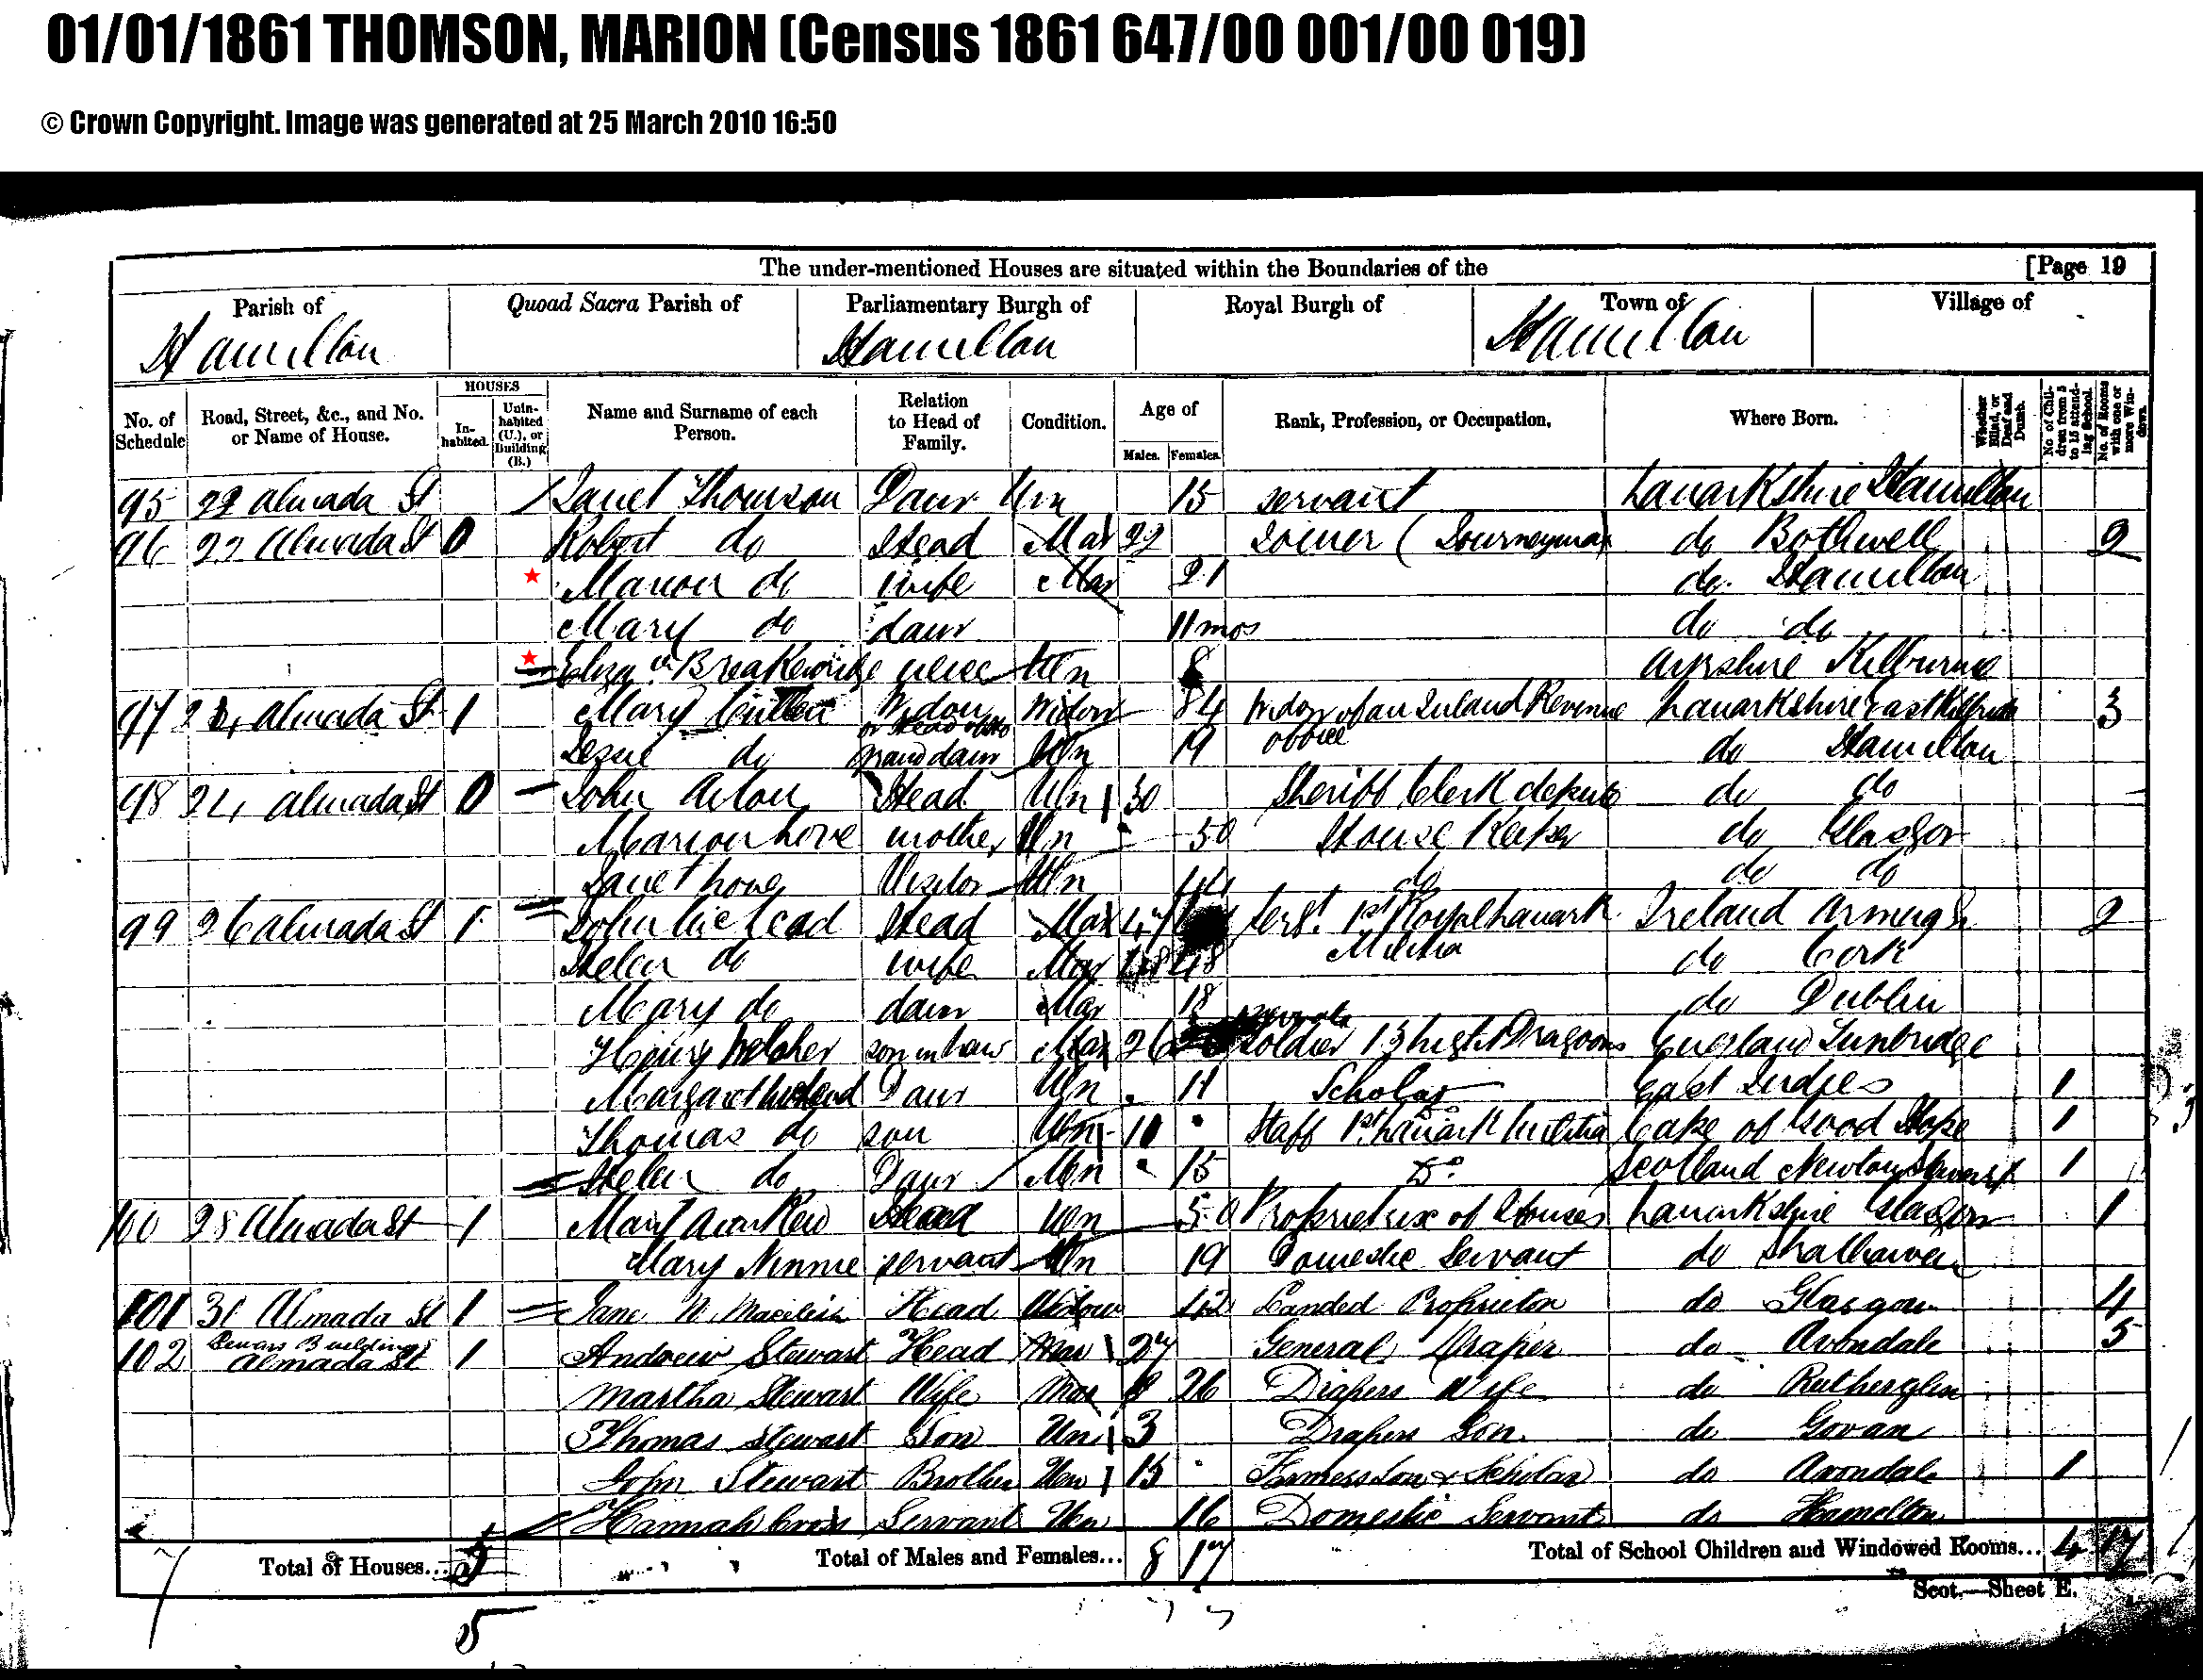 01/01/1861 THOMSON, MARION (Census 1861 647/00 001/00 019)
© Crown Copyright. Image was generated at 25 March 2010 16:50
The under-mentioned Houses are situated within the Boundaries of the [Page 19
Parish of Quoad Sacra Parish of Parliamentary Burgh of Royal Burgh of Town of Village of
Hamilton Hamilton Hamilton
No. of Schedule Road, Street, &c., and No. or Name of House. HOUSES Inhabited. Uninhabited (U.), or Building (B.) Name and Surname of each Person. Relation to Head of Family. Condition. Age of Males. Females. Rank, Profession, or Occupation. Where Born. Whether Blind, or Deaf and Dumb. No of Children from 5 to 15 attending School. No. of Rooms with one or more Windows.
95 22 Almada St Janet Thomson Daur Un 15 servant Lanarkshire Hamilton
96 22 Almada St 0 Robert do Head Mar 22 Joiner (Journeyman) do Bothwell 2
Marion do wife Mar 21 do Hamilton
Mary do daur 11 mos do do
Eliza niece Un 8 Ayrshire
97 24 Almada St 1 Mary Widow Widow 84 Widow of an Inland Revenue Lanarkshire East Kilbride 3
office
Jessie do grand daur Un 19 do Hamilton
98 24 Almada St 0 John Un 30 Sheriff Clerk depute do do
Head
Marion Love mother Un 50 House Keeper do Glasgow
Janet Love Visitor Un 44 do do do
99 26 Almada St 1 John Head Mar 47 Sergt 1st Royal Lanark Ireland Armagh 2
Militia
Helen do wife Mar 48 do Cork
Mary do daur Mar 18 do Dublin
Henry son in law Mar 26 private soldier 13 Light Dragoons England Tunbridge
Margaret Daur Un 11 Scholar East Indies 1
Thomas do son Un 10 Staff 1st Lanark Militia Cape of Good Hope 1
Helen do Daur Un 15 Do Scotland Newton Stewart 1
100 28 Almada St 1 Mary Head Un 50 Proprietrix of Houses Lanarkshire Glasgow 1
Mary servant Un 19 Domestic Servant do Strathaven
101 30 Almada St 1 Jane Head Widow 42 Landed Proprietor do Glasgow 4
102 Buildings Almada St 1 Andrew Stewart Head Mar 27 General Draper do Avondale 5
Martha Stewart Wife Mar 26 Drapers Wife do Rutherglen
Thomas Stewart Son Un 3 Drapers Son do Govan
John Stewart Brother Un 15 Farmers Son & Scholar do Avondale 1
Hannah Cross Servant Un 16 Domestic Servant do Hamilton
Total of Houses... 5 Total of Males and Females... 8 17 Total of School Children and Windowed Rooms... 4 17
Scot.—Sheet E.
5